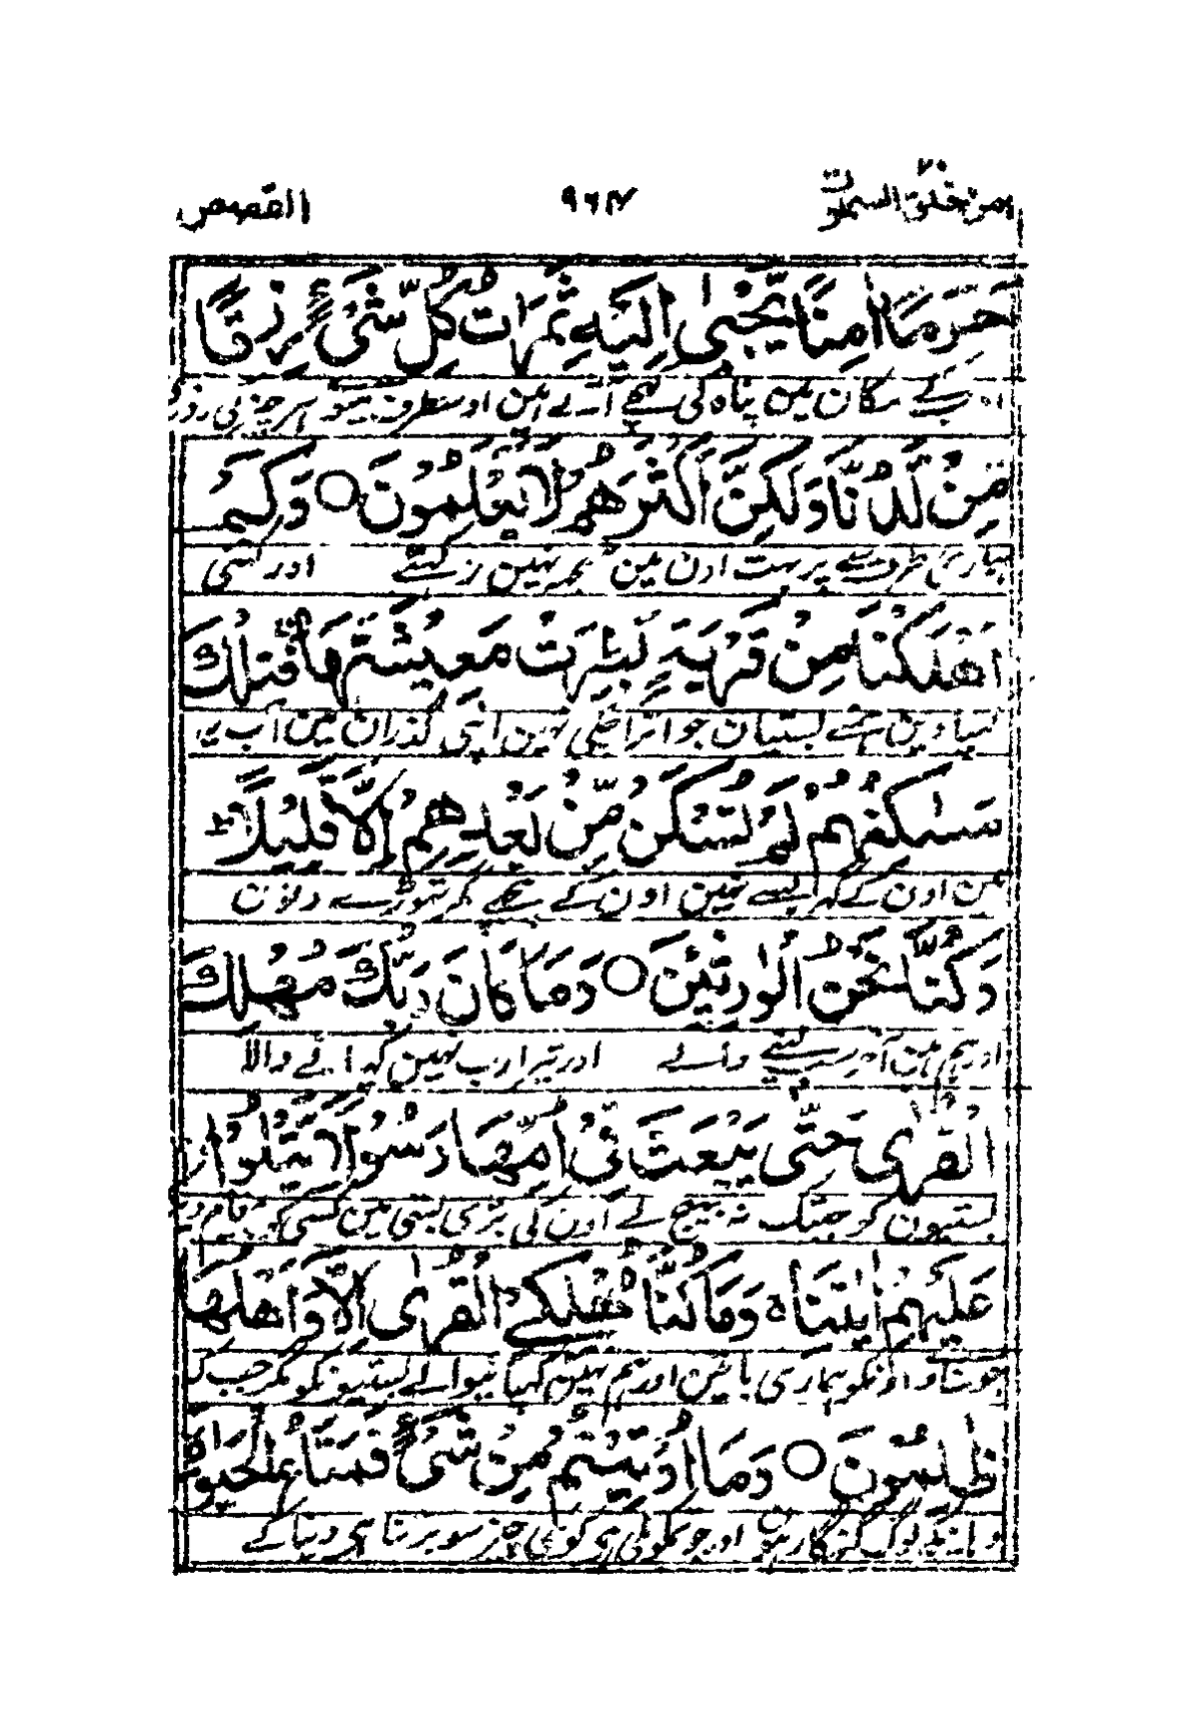 امن خلق السموٰت ٢٠ ٩٦٧ القصص
حَرَمًا اٰمِنًا يُّجْبٰى اِلَيْهِ ثَمَرٰتُ كُلِّ شَىْءٍ رِّزْقًا
ادب کے مکان مین پناہ کی کھچے آتے ہین اوسطرف میوے ہر چیز کی روزی
مِّنْ لَّدُنَّا وَلٰكِنَّ اَكْثَرَهُمْ لَا يَعْلَمُوْنَ ○ وَكَمْ
ہماری طرف سے پر بہت اون مین سمجہ نہین رکہتے اور کتنی
اَهْلَكْنَا مِنْ قَرْيَةٍۭ بَطِرَتْ مَعِيْشَتَهَا فَتِلْكَ
کہپا دین ہمنے بستیان جو اترا چلی تہین اپنی گذران مین اب یہ
مَسٰكِنُهُمْ لَمْ تُسْكَنْ مِّنْۢ بَعْدِهِمْ اِلَّا قَلِيْلًا ط
ہین اون کے گہر بسے نہین اون کے پیچھے مگر تہوڑے دنون
وَكُنَّا نَحْنُ الْوٰرِثِيْنَ ○ وَمَا كَانَ رَبُّكَ مُهْلِكَ
اور ہم ہین آخر سب لینے والے اور تیرا رب نہین کہپانے والا
الْقُرٰى حَتّٰى يَبْعَثَ فِىْٓ اُمِّهَا رَسُوْلًا يَّتْلُوْا
بستیون کو جبتک نہ بہیج لے اون کی بڑی بستی مین کسی کو پیغام دیکر
عَلَيْهِمْ اٰيٰتِنَا ه وَمَا كُنَّا مُهْلِكِى الْقُرٰىٓ اِلَّا وَاَهْلُهَا
جو سناوے اونکو ہماری باتین اور ہم نہین کہپانیوالے بستیونکو مگر جب کہ
ظٰلِمُوْنَ ○ وَمَآ اُوْتِيْتُمْ مِّنْ شَىْءٍ فَمَتَاعُ الْحَيٰوةِ
وہانکے لوگ گنہگار ہون اور جو تمکو ملی ہی کوئی چیز سو برتنا ہی دنیا کے